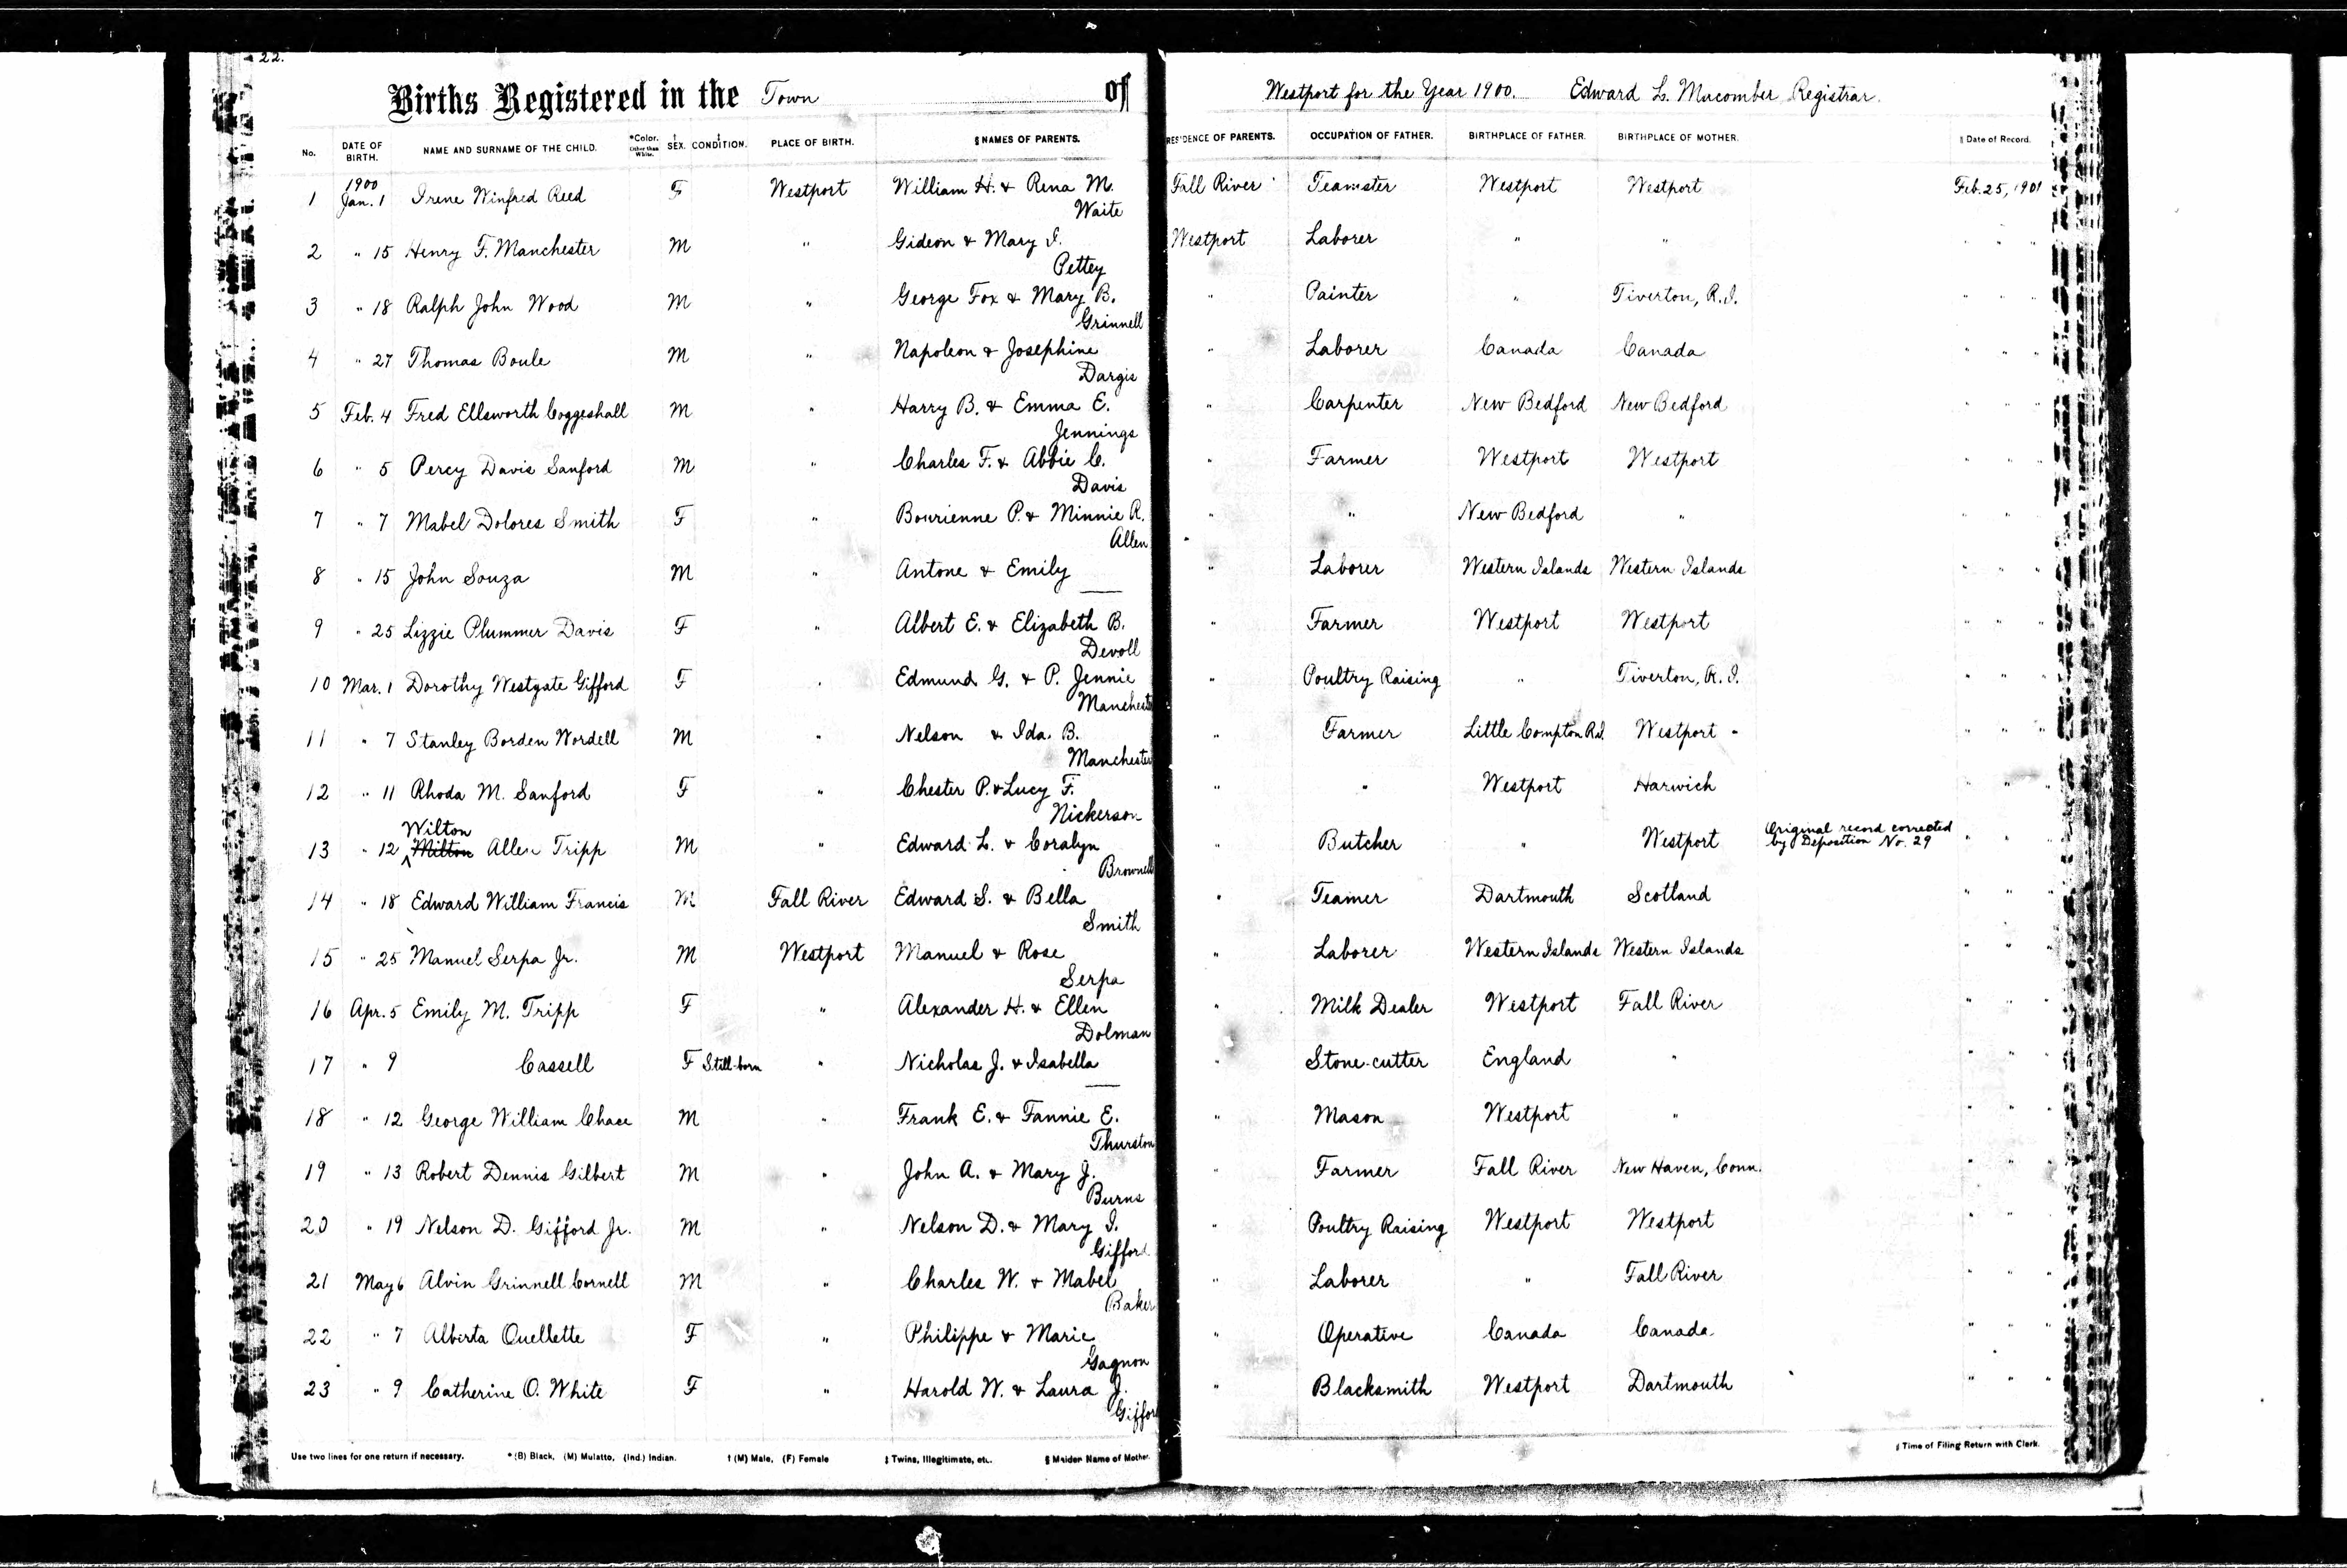 22.
Births Registered in the Town of Westport for the Year 1900. Edward L. Macomber Registrar.
No. DATE OF BIRTH. NAME AND SURNAME OF THE CHILD. *Color. Other than White. † SEX. ‡ CONDITION. PLACE OF BIRTH. § NAMES OF PARENTS. RESIDENCE OF PARENTS. OCCUPATION OF FATHER. BIRTHPLACE OF FATHER. BIRTHPLACE OF MOTHER. ‖ Date of Record.
1 1900 Jan. 1 Irene Winfred Reed F Westport William H. & Rena M. Waite Fall River Teamster Westport Westport Feb. 25, 1901
2 " 15 Henry F. Manchester M " Gideon & Mary I. Pettey Westport Laborer " " " " "
3 " 18 Ralph John Wood M " George Fox & Mary B. Grinnell " Painter " Tiverton, R.I. " " "
4 " 27 Thomas Boule M " Napoleon & Josephine Dargis " Laborer Canada Canada " " "
5 Feb. 4 Fred Ellsworth Coggeshall M " Harry B. & Emma E. Jennings " Carpenter New Bedford New Bedford " " "
6 " 5 Percy Davis Sanford M " Charles F. & Abbie C. Davis " Farmer Westport Westport " " "
7 " 7 Mabel Dolores Smith F " Bourienne P. & Minnie R. Allen " " New Bedford " " " "
8 " 15 John Souza M " Antone & Emily — " Laborer Western Islands Western Islands " " "
9 " 25 Lizzie Plummer Davis F " Albert E. & Elizabeth B. Devoll " Farmer Westport Westport " " "
10 Mar. 1 Dorothy Westgate Gifford F " Edmund G. & P. Jennie Manchester " Poultry Raising " Tiverton, R.I. " " "
11 " 7 Stanley Borden Wordell M " Nelson & Ida. B. Manchester " Farmer Little Compton R.I. Westport " " "
12 " 11 Rhoda M. Sanford F " Chester P. & Lucy F. Nickerson " " Westport Harwich " " "
13 " 12 Wilton Milton Allen Tripp M " Edward L. & Coralyn Brownell " Butcher " Westport Original record corrected by Deposition No. 29 " " "
14 " 18 Edward William Francis M Fall River Edward S. & Bella Smith " Teamer Dartmouth Scotland " " "
15 " 25 Manuel Serpa Jr. M Westport Manuel & Rose Serpa " Laborer Western Islands Western Islands " " "
16 Apr. 5 Emily M. Tripp F " Alexander H. & Ellen Dolman " Milk Dealer Westport Fall River " " "
17 " 9 Cassell F Still-born " Nicholas J. & Isabella — " Stone-cutter England " " " "
18 " 12 George William Chace M " Frank E. & Fannie E. Thurston " Mason Westport " " " "
19 " 13 Robert Dennis Gilbert M " John A. & Mary J. Burns " Farmer Fall River New Haven, Conn. " " "
20 " 19 Nelson D. Gifford Jr. M " Nelson D. & Mary I. Gifford " Poultry Raising Westport Westport " " "
21 May 6 Alvin Grinnell Cornell M " Charles W. & Mabel Baker " Laborer " Fall River " " "
22 " 7 Alberta Ouellette F " Philippe & Marie Gagnon " Operative Canada Canada " " "
23 " 9 Catherine O. White F " Harold W. & Laura J. Gifford " Blacksmith Westport Dartmouth " " "
Use two lines for one return if necessary. *(B) Black, (M) Mulatto, (Ind.) Indian. † (M) Male, (F) Female ‡ Twins, Illegitimate, etc. § Maiden Name of Mother. ‖ Time of Filing Return with Clerk.